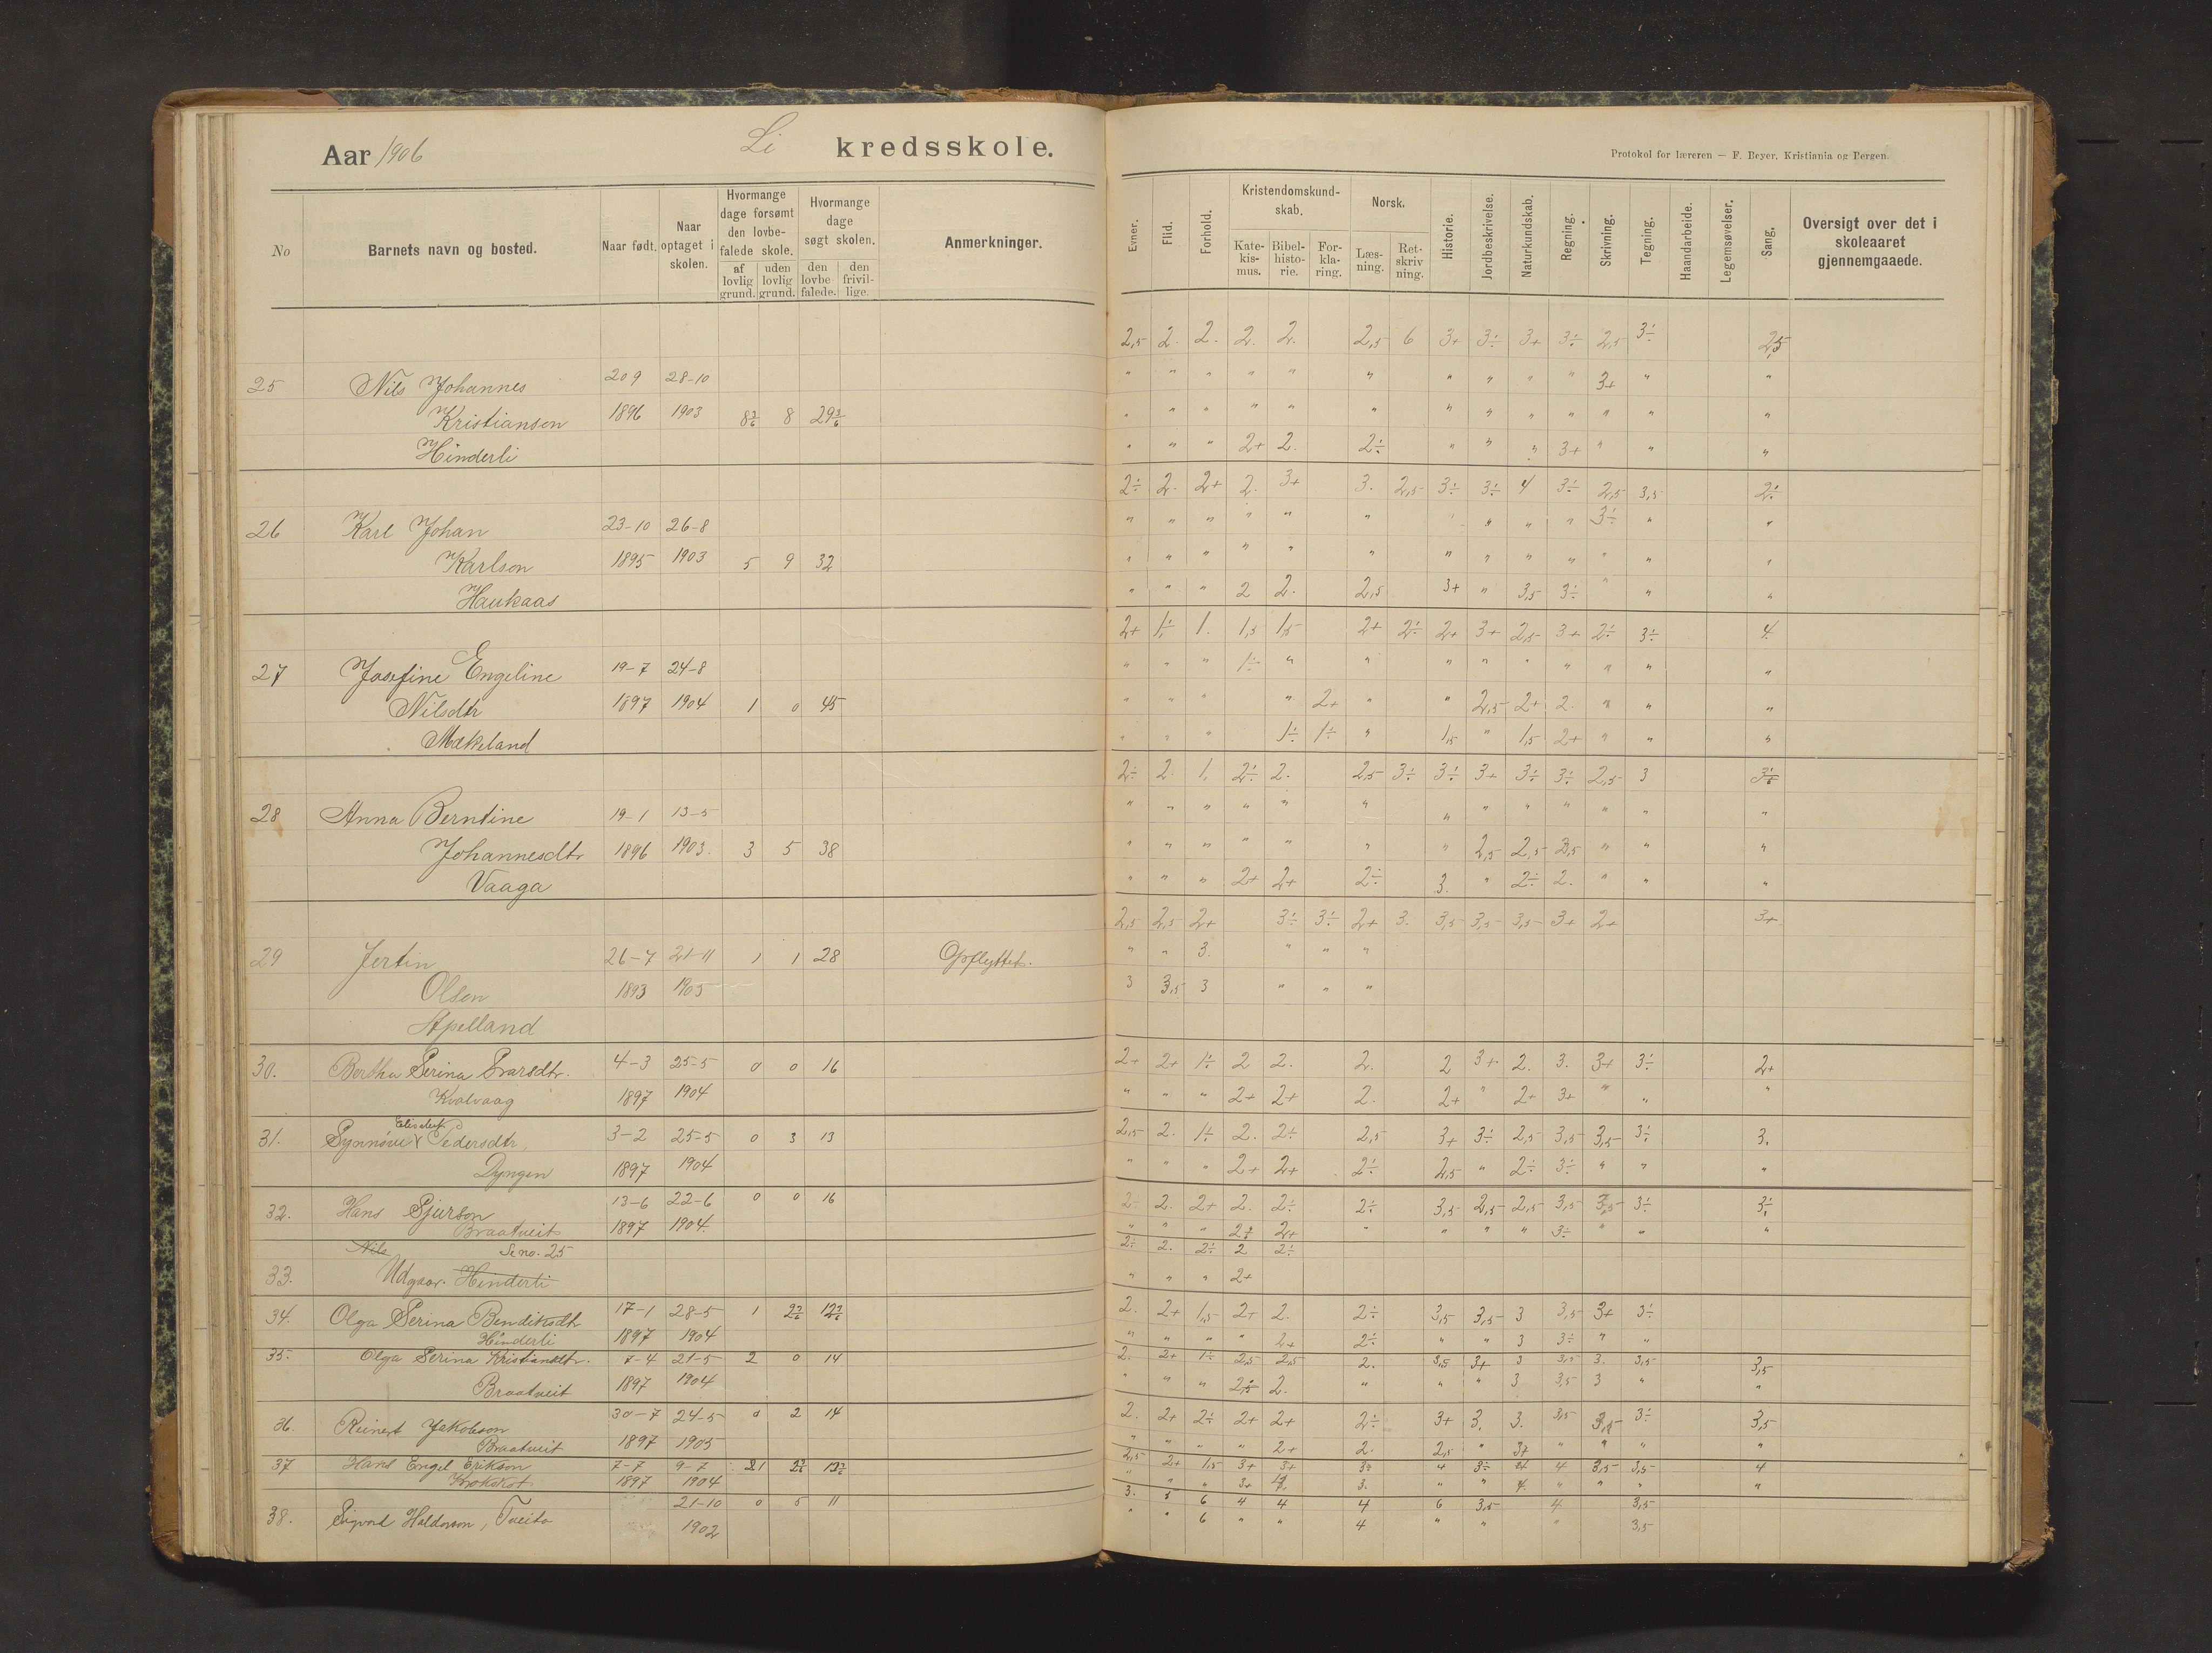 Aar 1906 Li kredsskole.
Protokol for læreren — F. Beyer, Kristiania og Bergen.
No Barnets navn og bosted. Naar født. Naar optaget i skolen. Hvormange dage forsømt den lovbefalede skole. af lovlig grund. uden lovlig grund. Hvormange dage søgt skolen. den lovbefalede. den frivillige. Anmerkninger.
Evner. Flid. Forhold. Kristendomskundskab. Katekismus. Bibelhistorie. Forklaring. Norsk. Læsning. Retskrivning. Historie. Jordbeskrivelse. Naturkundskab. Regning. Skrivning. Tegning. Haandarbeide. Legemsøvelser. Sang. Oversigt over det i skoleaaret gjennemgaaede.
2,5 2. 2. 2. 2. 2,5 6 3+ 3÷ 3+ 3÷ 2,5 3÷ 2,5
25 Nils Johannes 20 9 28-10 " " " " " " " " " " 3+ " "
Kristianson 1896 1903 8 3/6 8 29 3/6 " " " " " " " " " " " " "
Hinderli " " " 2+ 2. 2÷ " " " 3+ " " "
2÷ 2. 2+ 2. 3+ 3. 2,5 3÷ 3÷ 4 3÷ 2,5 3,5 2÷
26 Karl Johan 23-10 26-8 " " " " " " " " " " 3÷ " "
Karlson 1895 1903 5 9 32 " " " " " " " " " " " " "
Haukaas " " " 2 2. 2,5 3+ " 3,5 3÷ " " "
2+ 1÷ 1. 1,5 1,5 2+ 2÷ 2+ 3+ 2,5 3+ 2÷ 3÷ 4
27 Josefine Engeline 19-7 24-8 " " " 1÷ " " " " " " " " "
Nilsdtr 1897 1904 1 0 45 " " " " 2+ " " 2,5 2+ 2. " " "
Mækeland " " " 1÷ 1÷ " 1,5 " 1,5 2+ " " "
2÷ 2. 1. 2÷ 2. 2,5 3÷ 3÷ 3+ 3÷ 3÷ 2,5 3 3÷
28 Anna Berntine 19-1 13-5 " " " " " " " " " " " " "
Johannesdtr 1896 1903. 3 5 38 " " " " " " " 2,5 2,5 3,5 " " "
Vaaga " " " 2+ 2+ 2÷ 3. " 2÷ 2. " " "
2,5 2,5 2+ 3÷ 3÷ 2+ 3. 3,5 3,5 3,5 3+ 2+ 3+
29 Jertin 26-7 21-11 1 1 28 Opflyttet. " " 3. " " "
Olson 1893 1905 3 3,5 3 " " "
Apelland
30. Bertha Serina Ivarsdtr. 4-3 25-5 0 0 16 2+ 2+ 1÷ 2 2. 2. 2 3+ 2. 3. 3+ 3÷ 2+
Kvalvaag 1897 1904 " " " 2+ 2+ 2. 2+ " 2+ 3+ " " "
31. Synnøve Pedersdtr 3-2 25-5 0 3 13 2,5 2. 1÷ 2. 2÷ 2,5 3+ 3÷ 2,5 3,5 3,5 3÷ 3.
Dyngen 1897 1904 " " " 2+ 2+ 2÷ 2,5 " 2÷ 3÷ " " "
32. Hans Sjurson 13-6 22-6 0 0 16 2÷ 2. 2+ 2. 2÷ 2÷ 3,5 2,5 2,5 3,5 3,5 3÷ 3÷
Braatveit 1897 1904. " " " 2+ 2+ " " " " 3÷ " " "
Nils Se no. 25 2÷ 2. 2÷ 2 2÷
33. Udgaar. Hinderli " " " 2+
34. Olga Serina Bendiksdtr 17-1 28-5 1 2 2/6 12 2/6 2. 2+ 1,5 2+ 2. 2÷ 3,5 3,5 3 3,5 3+ 3÷
Hinderli 1897 1904 " " " " 2+ 2÷ " " 3 3÷ " "
35. Olga Serina Kristiansdtr. 7-4 21-5 2 0 14 2. 2+ 1÷ 2,5 2,5 2. 3,5 3+ 3 3,5 3. 3,5 3,5
Braatveit 1897 1904 " " " 2,5 2. " " " 3 3,5 3 " "
36. Reinert Jakobson 30-7 24-5 0 2 14 2. 2+ 2÷ 2+ 2+ 2÷ 3+ 3. 3. 3,5 3,5 3÷ 3,5
Braatveit 1897 1905 " " " " 2+ 2. 2,5 " " " " "
37 Hans Engel Erikson 7-7 9-7 2,5 2+ 1,5 3+ 3+ 3÷ 4 3÷ 4 4 3,5 3,5 4
1897 1904 " " " 3+ 3. " " 4 " " " "
38. Sigvord Haldorson, Tveita 21-10 0 5 11 3. 6 4 4 4 6 3,5 4. 3,5
1902 " " 6 " " 4 " " " 3,5